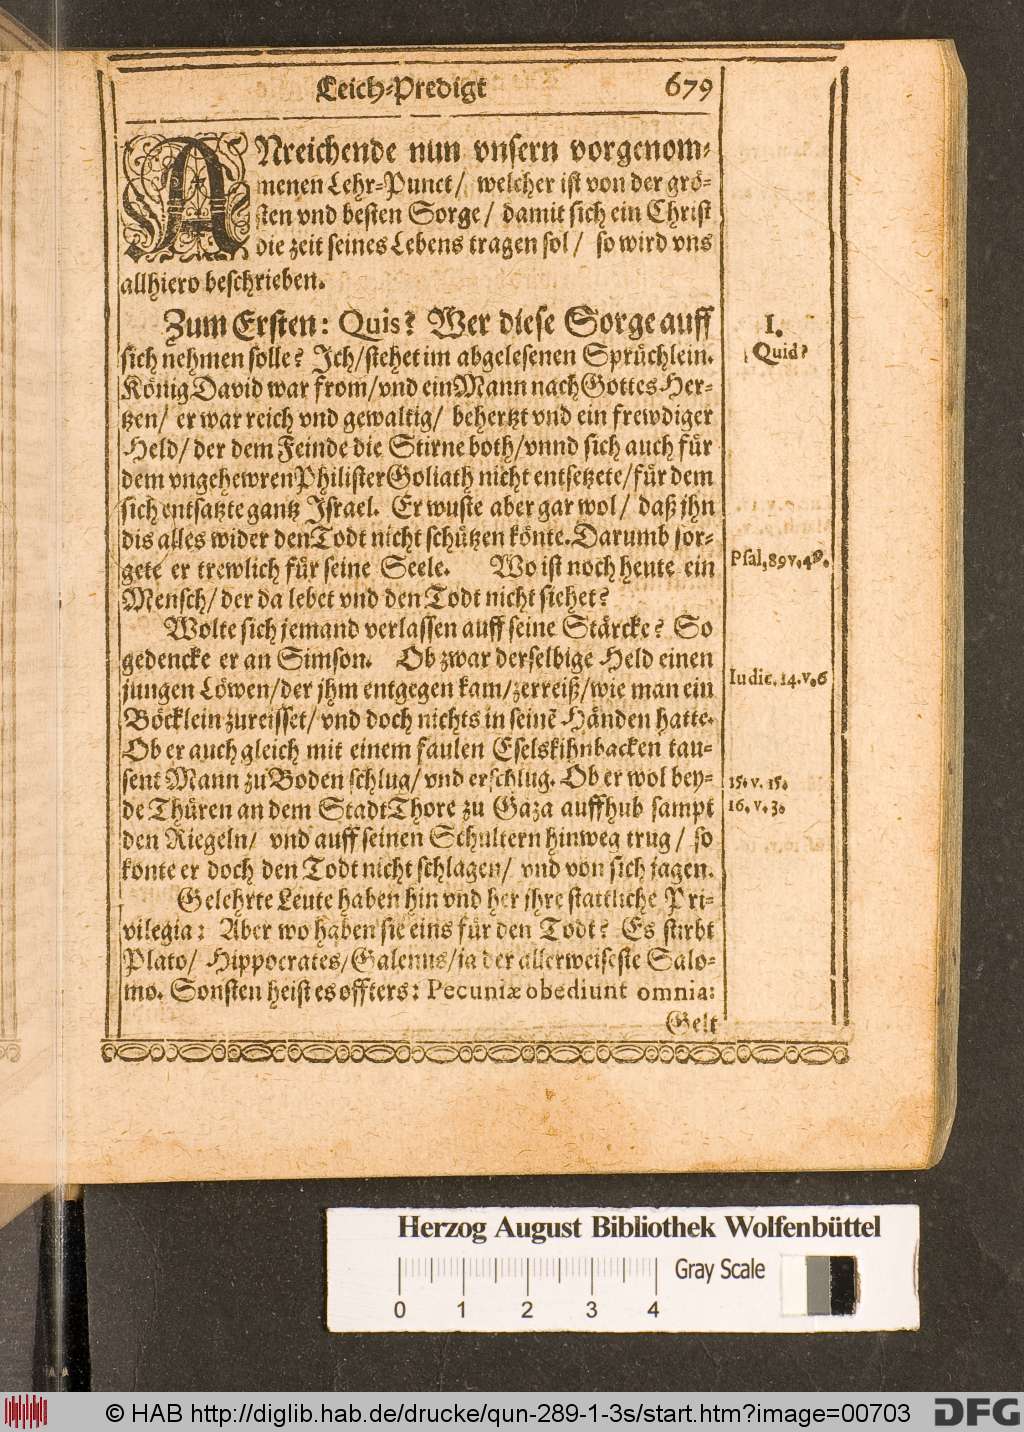 Leich-Predigt 679
ANreichende nun vnsern vorgenom-
menen Lehr-Punct/ welcher ist von der grö-
sten vnd besten Sorge/ damit sich ein Christ
die zeit seines Lebens tragen sol/ so wird vns
allhiero beschrieben.
Zum Ersten: Quis? Wer diese Sorge auff
sich nehmen solle? Ich/stehet im abgelesenen Sprüchlein.
König David war from/vnd ein Mann nach Gottes Her-
tzen/ er war reich vnd gewaltig/ behertzt vnd ein frewdiger
Held/ der dem Feinde die Stirne both/vnnd sich auch für
dem vngehewren Philister Goliath nicht entsetzete/für dem
sich entsatzte gantz Israel. Er wuste aber gar wol/ daß jhn
dis alles wider den Todt nicht schützen könte. Darumb sor-
gete er trewlich für seine Seele. Wo ist noch heute ein
Mensch/ der da lebet vnd den Todt nicht siehet?
Wolte sich jemand verlassen auff seine Stärcke? So
gedencke er an Simson. Ob zwar derselbige Held einen
jungen Löwen/der jhm entgegen kam/zerreiß/wie man ein
Böcklein zureisset/ vnd doch nichts in seinē Händen hatte.
Ob er auch gleich mit einem faulen Eselskihnbacken tau-
sent Mann zu Boden schlug/vnd erschlug. Ob er wol bey-
de Thüren an dem StadtThore zu Gaza auffhub sampt
den Riegeln/ vnd auff seinen Schultern hinweg trug/ so
konte er doch den Todt nicht schlagen/ vnd von sich jagen.
Gelehrte Leute haben hin vnd her jhre stattliche Pri-
vilegia: Aber wo haben sie eins für den Todt? Es stirbt
Plato/ Hippocrates/Galenus/ja der allerweiseste Salo-
mo. Sonsten heist es öffters: Pecuniæ obediunt omnia:
Gelt
I.
Quid?
Psal, 89 v. 49.
Iudic. 14. v. 6
15. v. 15.
16. v. 3.
Herzog August Bibliothek Wolfenbüttel
Gray Scale
0 1 2 3 4
© HAB http://diglib.hab.de/drucke/qun-289-1-3s/start.htm?image=00703
DFG